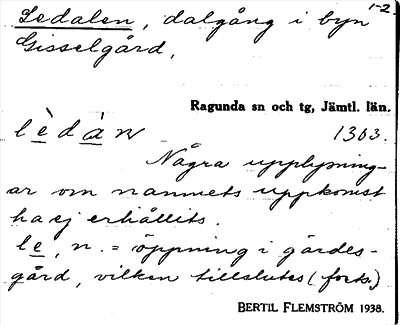 Ledalen, dalgång i byn
1-2.
Gisselgård.
Ragunda sn och tg, Jämtl. län.
lèdàn 1303.
Några upplysning-
ar om namnets uppkomst
ha ej erhållits.
le, n. = öppning i gärdes-
gård, vilken tillslutes (forts.)
BERTIL FLEMSTRÖM 1938.